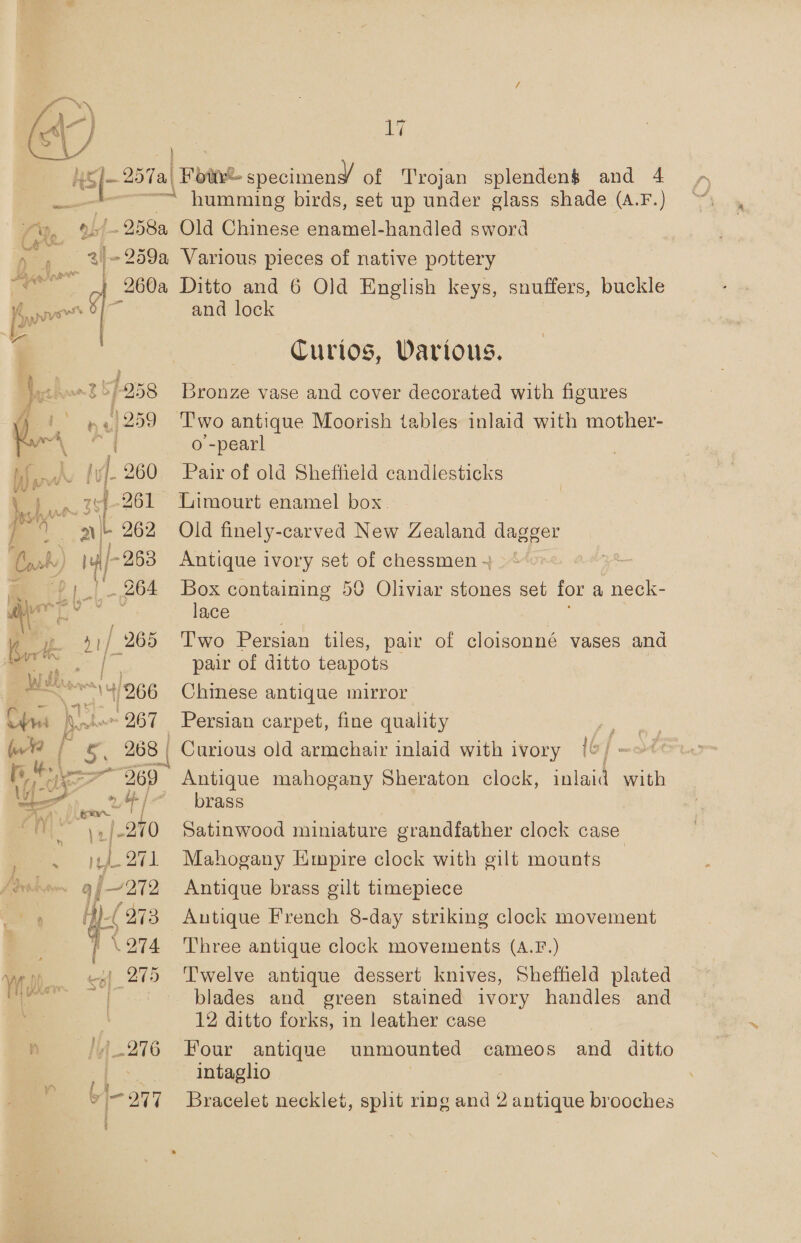 17
257a Four specimens of Trojan splendens and 4
humming birds, set up under glass shade (A.F.)
258a Old Chinese enamel-handled sword
259a Various pieces of native pottery
260a Ditto and 6 Old English keys, snuffers, buckle
and lock
Curios, Various.
258 Bronze vase and cover decorated with figures
259 Two antique Moorish tables inlaid with mother-
o'-pearl
260 Pair of old Sheffield candlesticks
261 Limourt enamel box
262 Old finely-carved New Zealand dagger
263 Antique ivory set of chessmen
264 Box containing 50 Oliviar stones set for a neck-
lace
265 Two Persian tiles, pair of cloisonné vases and
pair of ditto teapots
266 Chinese antique mirror
267 Persian carpet, fine quality
268 Curious old armchair inlaid with ivory
269 Antique mahogany Sheraton clock, inlaid with
brass
270 Satinwood miniature grandfather clock case
271 Mahogany Empire clock with gilt mounts
272 Antique brass gilt timepiece
273 Antique French 8-day striking clock movement
274 Three antique clock movements (A.F.)
275 Twelve antique dessert knives, Sheffield plated
blades and green stained ivory handles and
12 ditto forks, in leather case
276 Four antique unmounted cameos and ditto
intaglio
277 Bracelet necklet, split ring and 2 antique brooches